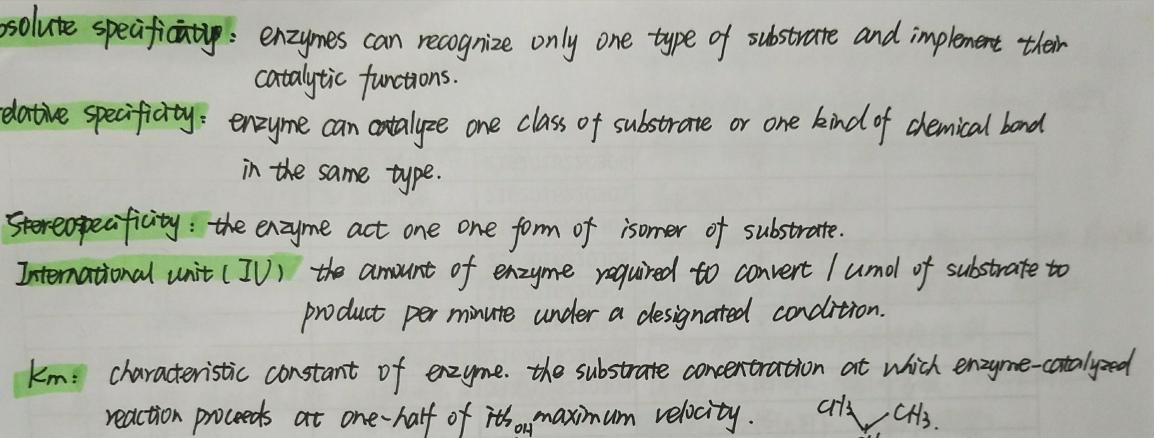 osolute specificity: enzymes can recognize only one type of substrate and implement their
catalytic functions.
elative specificity: enzyme can catalyze one class of substrate or one kind of chemical bond
in the same type.
Stereospecificity: the enzyme act one one form of isomer of substrate.
International unit (IU) the amount of enzyme required to convert 1 umol of substrate to
product per minute under a designated condition.
Km: characteristic constant of enzyme. the substrate concentration at which enzyme-catalyzed
reaction proceeds at one-half of its maximum velocity.
OH CH3 CH3.